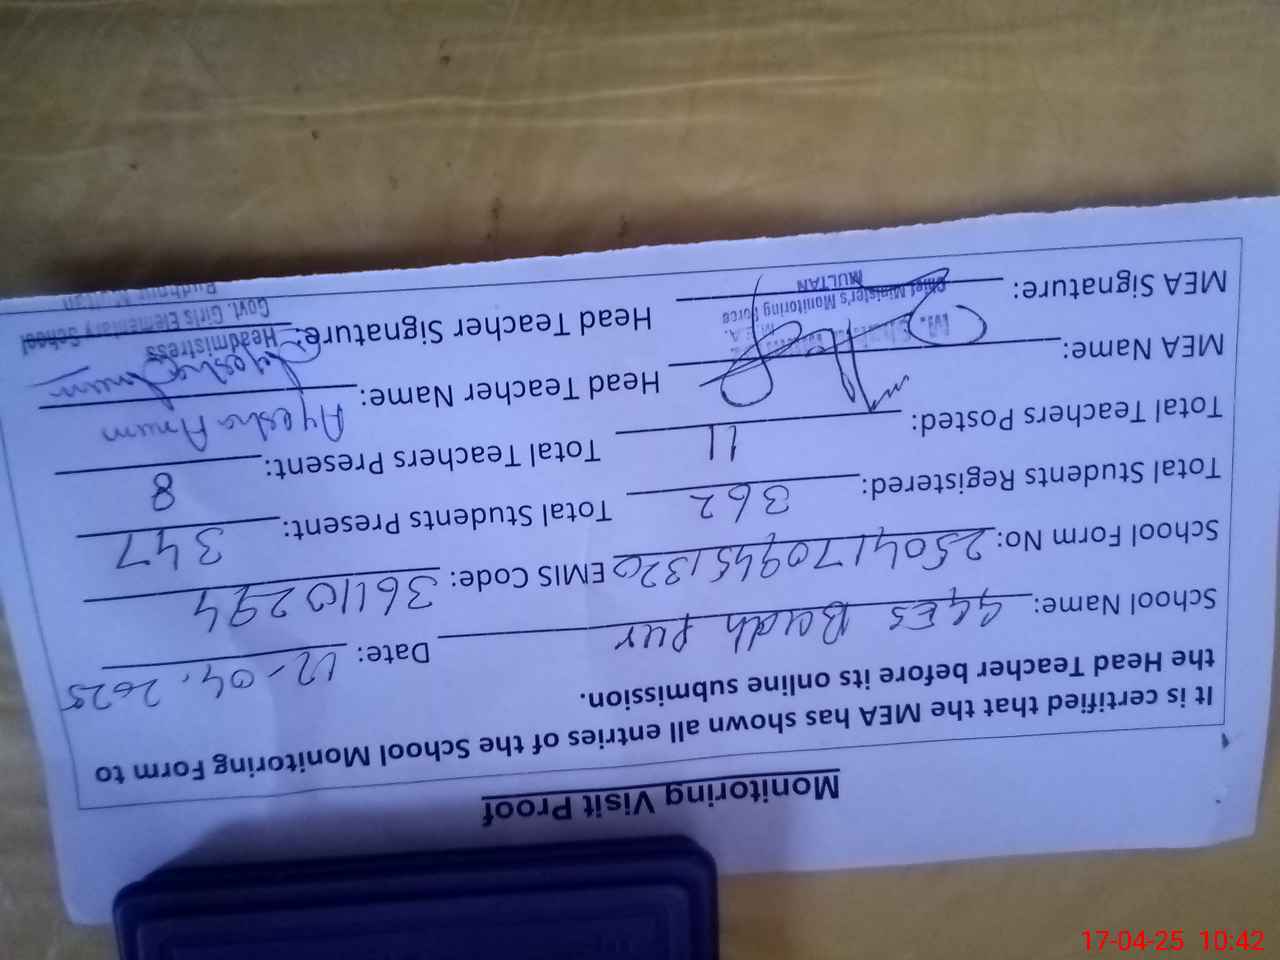 Monitoring Visit Proof
It is certified that the MEA has shown all entries of the School Monitoring Form to
the Head Teacher before its online submission.
School Name: GGES Budh Pur Date: 17-04-2025
School Form No: 25041709451320 EMIS Code: 36110294
Total Students Registered: 362 Total Students Present: 347
Total Teachers Posted: 11 Total Teachers Present: 8
MEA Name: Head Teacher Name: Ayesha Anum
MEA Signature: Head Teacher Signature: Ayesha Anum
M.E.A.
Chief Minister's Monitoring Force
MULTAN
Headmistress
Govt. Girls Elementary School
Budhpur Multan
17-04-25 10:42